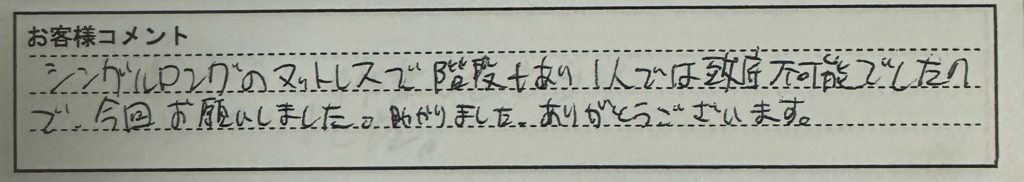 お客様コメント
シングルロングのマットレスで階段もあり1人では到底不可能でしたの
で、今回お願いしました。助かりました。ありがとうございます。